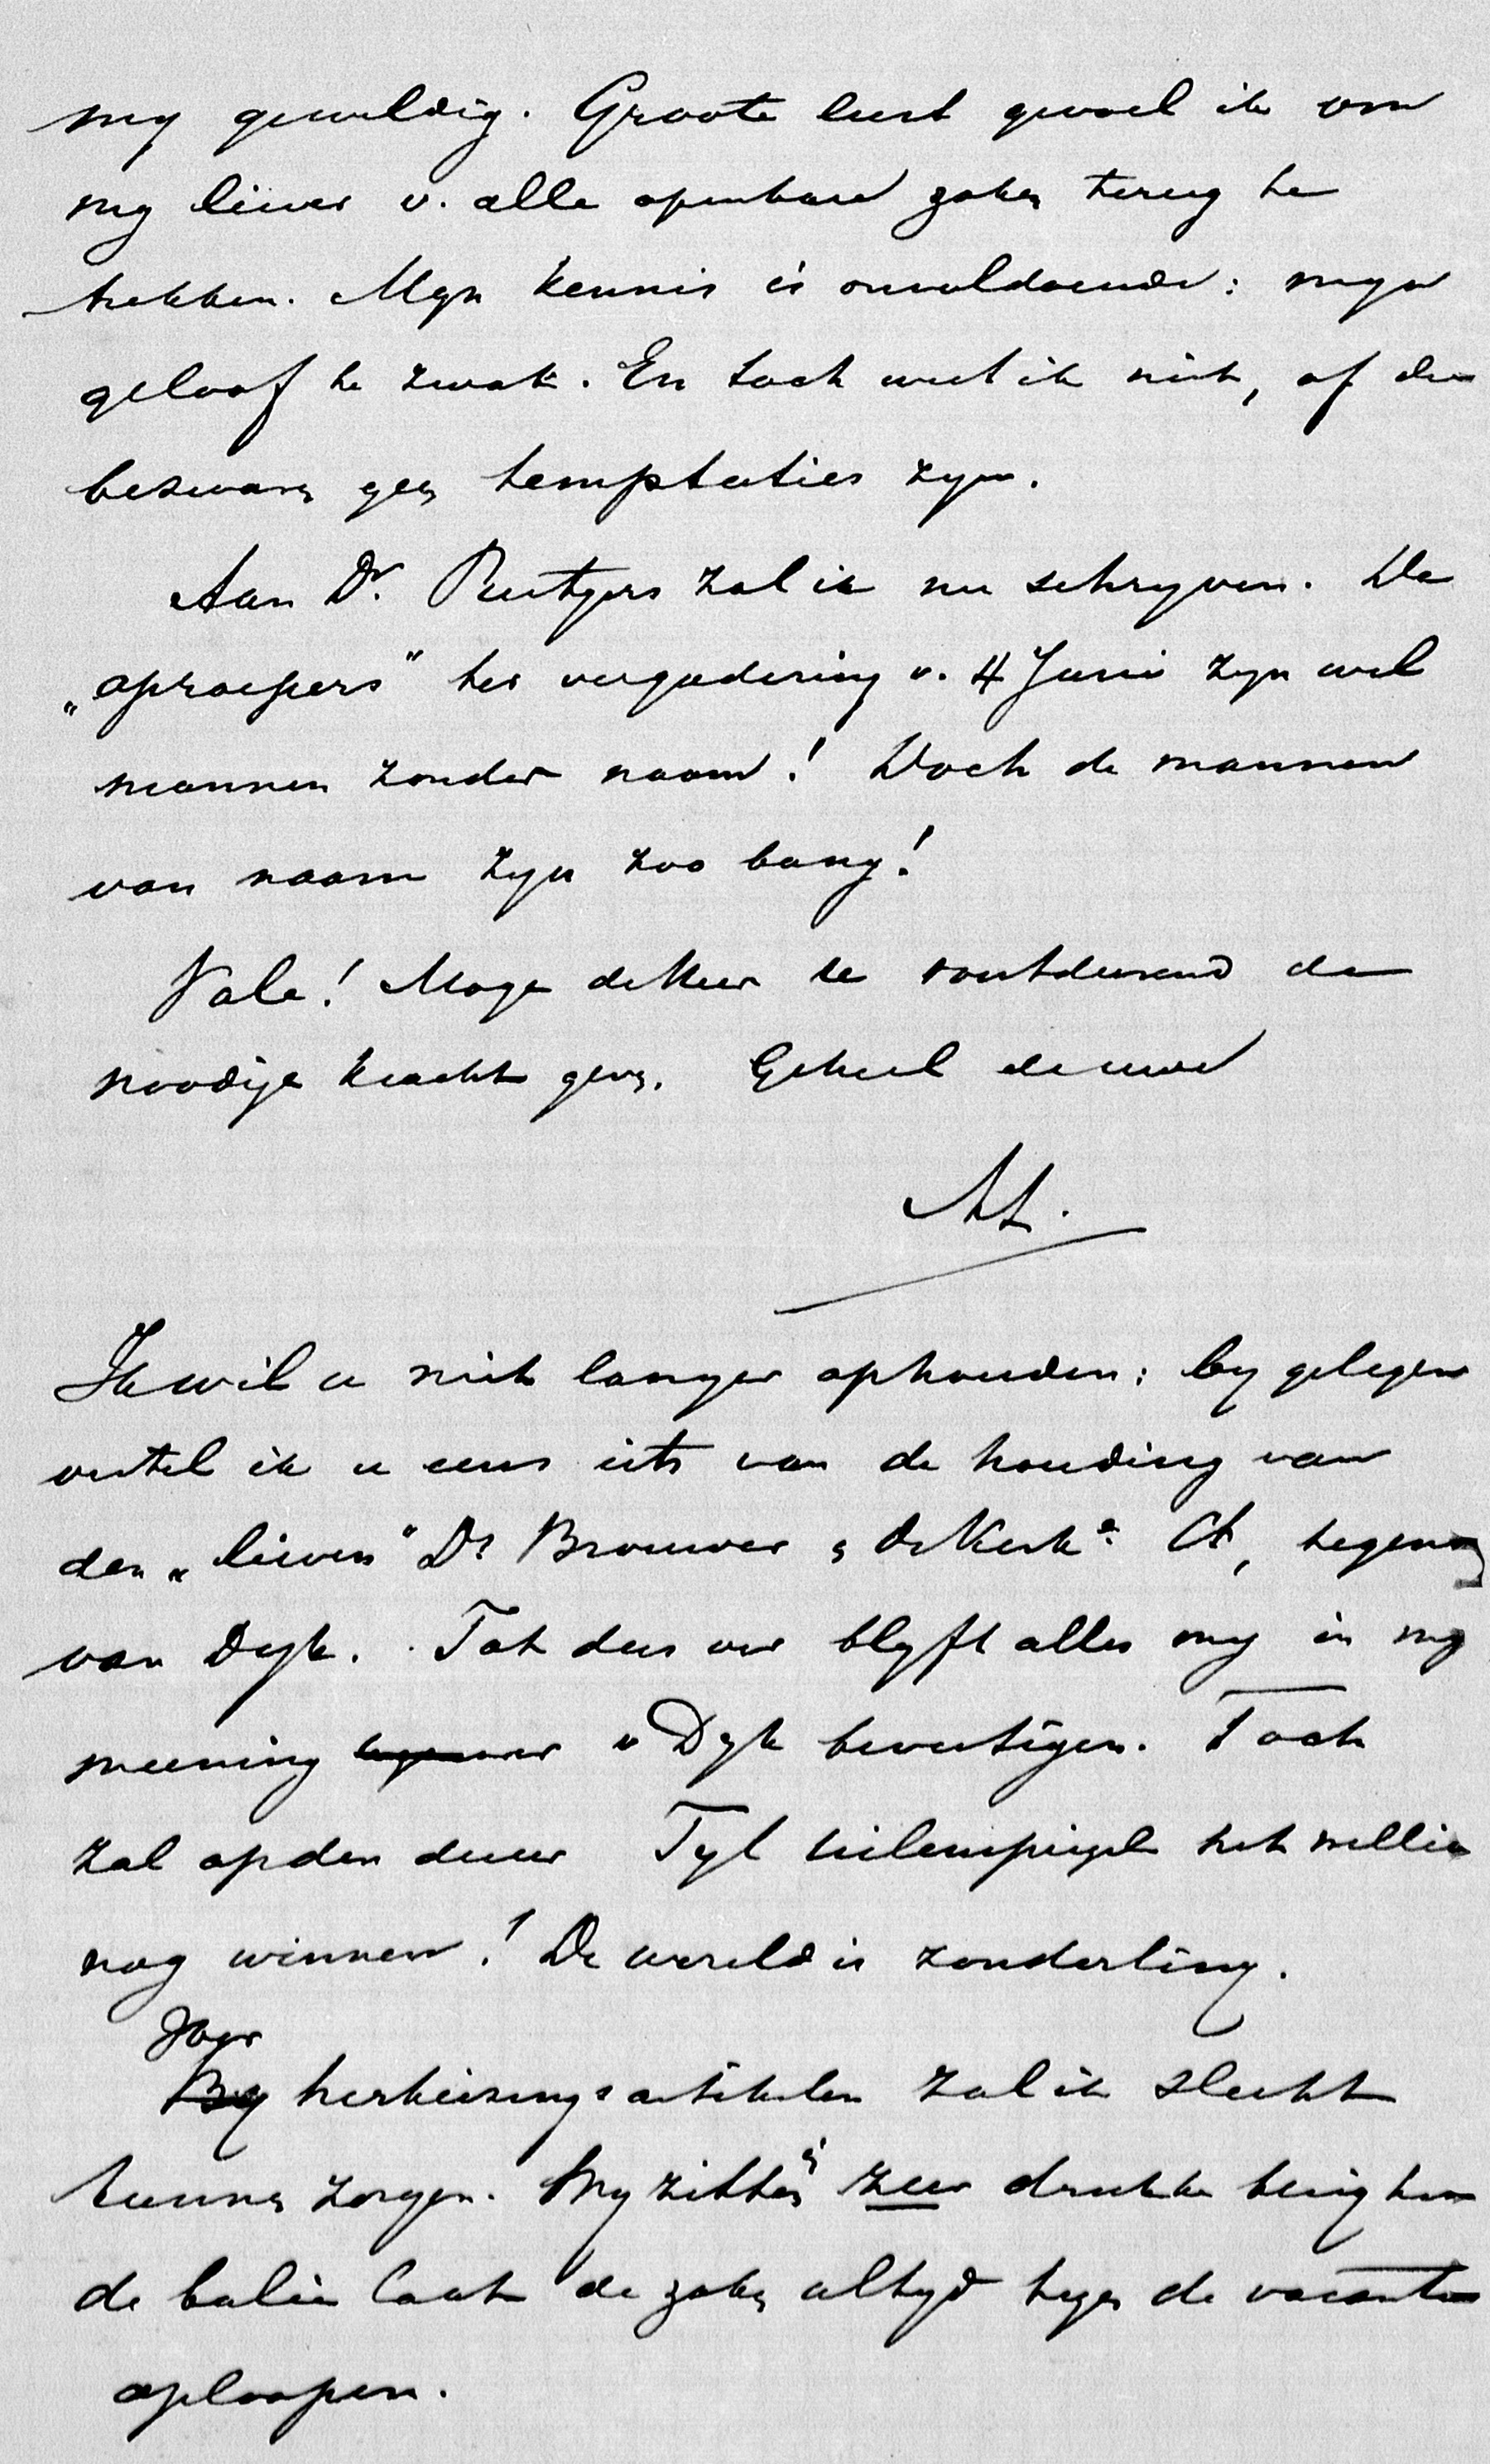 my geweldig. Groote lust gevoel ik om
my liever v. alle openbare zaken terug te
trekken. Myn kennis is onvoldoende: myn
geloof te zwak. En toch weet ik niet, of die
bezwaren geen temptaties zyn.
Aan Dr. Rutgers zal ik nu schryven. De
„oproepers" ter vergadering v. 4 Juni zyn wel
mannen zonder naam! Doch de mannen
van naam zyn zoo bang!
Vale! Moge de Heer U voortdurend de
noodige kracht geven. Geheel de uwe
Ik wil u niet langer ophouden: by gelegen
vertel ik u eens iets van de houding van
den „lieven" Ds Brouwer & de Kerk tegenover
van Dyk. Tot dus ver blyft alles my in my
meening v Dyk bevestigen. Toch
zal op den duur Tyl Uilenspiegel het
nog winnen! De wereld is zonderling.
Voor
By herkiezingsartikelen zal ik slecht
kunnen zorgen. My zitten zeer drukke bezig
de balie laat de zaken altyd tegen de vacantie
oploopen.